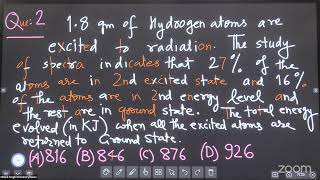 Que: 2
1.8 gm of Hydrogen atoms are
excited to radiation. The study
of spectra indicates that 27% of the
atoms are in 2nd excited state and 16%
of the atoms are in 2nd energy level and
the rest are in ground state. The total energy
evolved (in KJ) when all the excited atoms are
returned to Ground state.
(A) 816 (B) 846 (C) 876 (D) 926
zoom